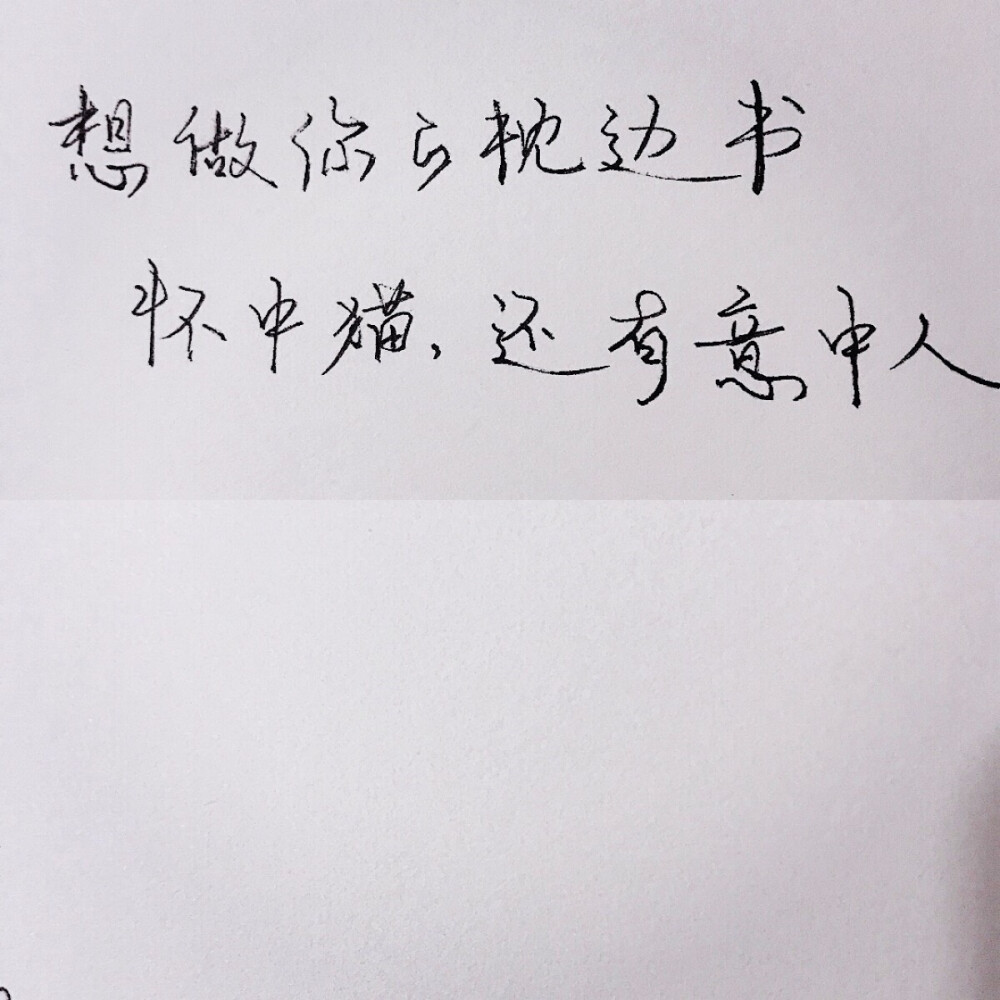 想做你的枕边书
怀中猫，还有意中人